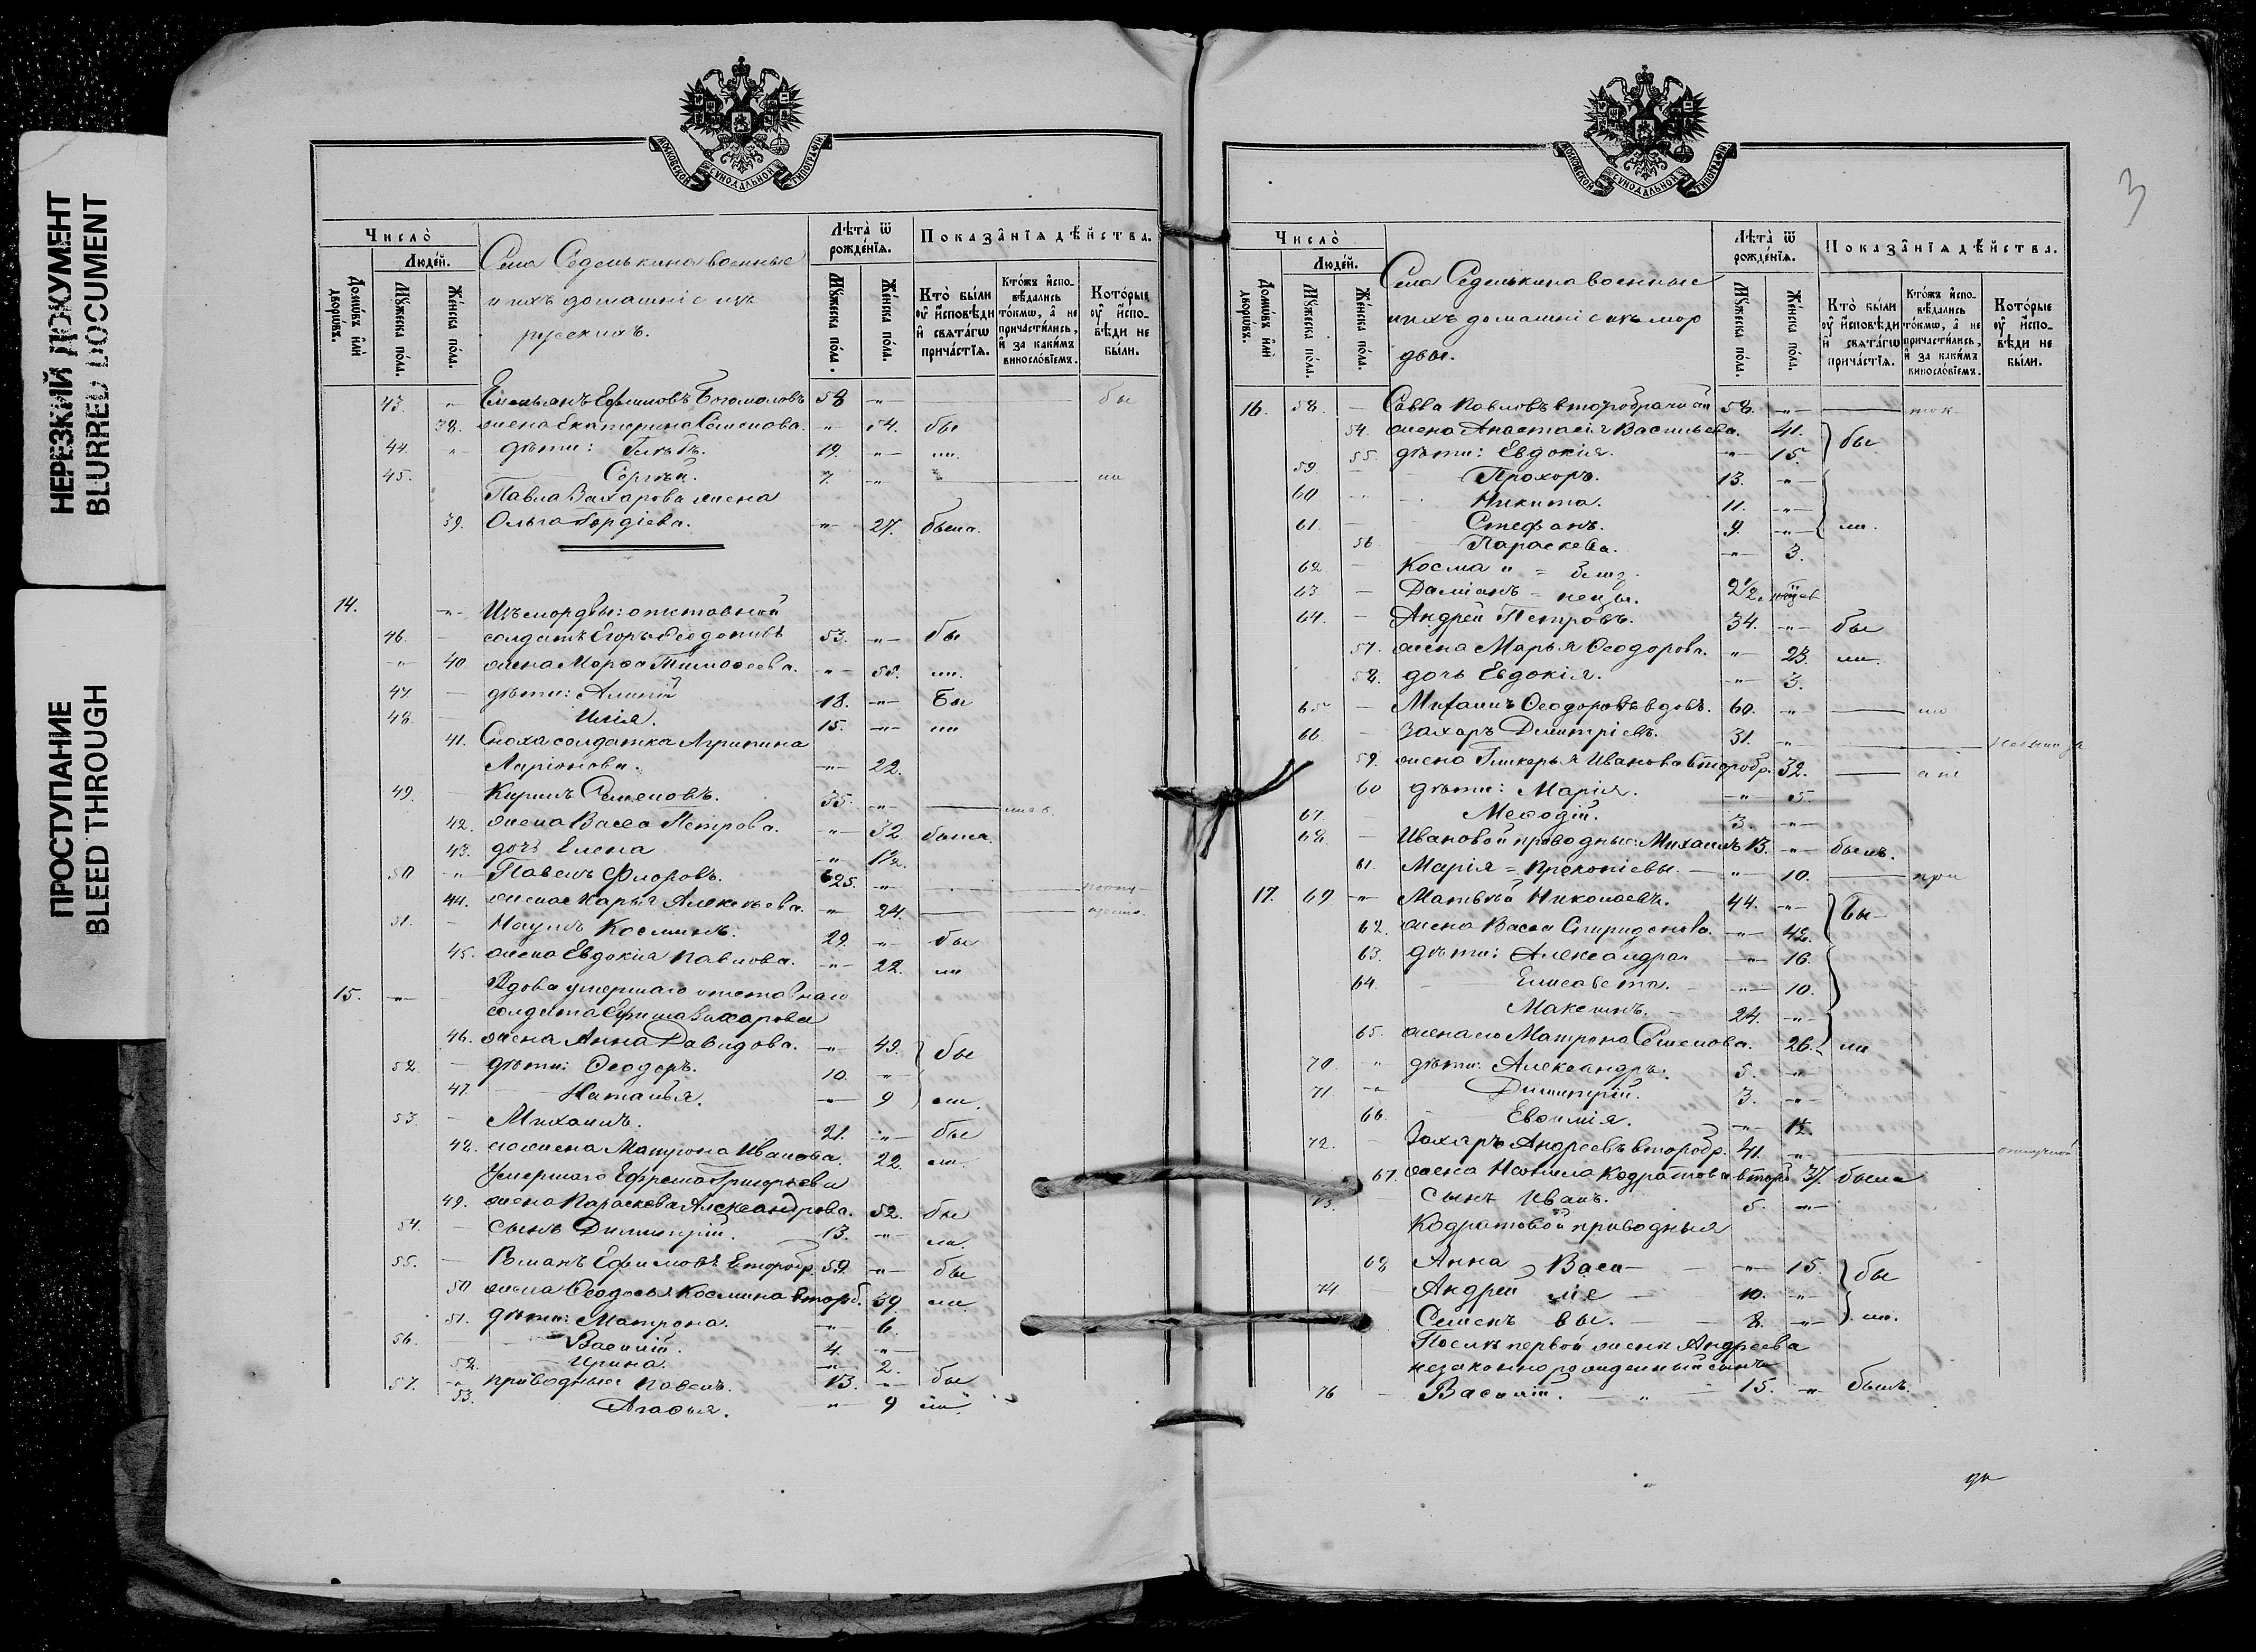 НЕРЕЗКИЙ ДОКУМЕНТ
BLURRED DOCUMENT
ПРОСТУПАНИЕ
BLEED THROUGH
МОСКОВСКОЙ СѴНОДАЛЬНОЙ ТИПОГРАФІИ
Число̀
Людей.
Домѡвъ и҆лѝ дворѡвъ.
Мꙋжеска по́ла.
Же́нска по́ла.
Села Седелькина военные
и ихъ домашніе изъ
русскихъ.
Лѣта̀ ѿ рожде́нїѧ.
Мꙋжеска по́ла.
Же́нска по́ла.
Показа̂нїѧ дѣ́йства.
Кто̀ бы́ли оу҆ и҆сповѣди и҆ свѧта́гѡ причастїѧ.
Кто́жъ и҆спо- вѣдались то́кмѡ, а҆ не причасти́лись, и҆ за каки́мъ винослові́емъ.
Кото́рые оу҆ и҆спо- вѣди не бы́ли.
43. " Емельянъ Ефимовъ Богомоловъ 58 " бы
38. жена Екатерина Семенова. " 54. бы
44. " дѣти: Глѣбъ. 19. " ли.
45. Сергѣй. 7. " ли
Павла Захарова жена
39. Ольга Гордіева. " 27. была.
14. " Изъ мордвы: отставной
46. солдатъ Егоръ 53. " бы
" 40. жена Марѳа Тимоѳеева. " 55. ли.
47. дѣти: Алипій 18. " Бы
48. Илія. 15. " ли
41. Сноха солдатка Агрипина
Ларіонова. " 22.
49. Кирилъ Семеновъ. 35. "
42. жена Васса Петрова. " 32 была.
43. дочь Елена " 1½.
50 " Павелъ Флоровъ. 25. "
44. жена Марья Алексѣева. " 24.
51. Наумъ Косминъ. 29. " бы
45. жена Евдокія Павлова. " 22. ли
15. " Вдова умершаго отставнаго
солдата Ефима Захарова
46. жена Анна Давидова. " 49. бы
52. дѣти: Ѳеодоръ. 10. "
47. Наталья. " 9 ли.
53. Михаилъ. 21. " бы
48. его жена Матрона Иванова. 22. ли.
Умершаго Ефрема Григорьева
49. жена Параскева Александрова. 52. бы
54. сынъ Димитрій. 13. " ла.
55. Романъ Ефимовъ второбр. 59. " бы
50 жена Ѳеодосья Космина второб. 39. ли.
51. дѣти: Матрона. " 6.
56. Василій. 4. "
52. Ирина. " 2.
57. " приводные Павелъ. 13. " бы
53. Агаѳья. " 9 ли.
3
МОСКОВСКОЙ СѴНОДАЛЬНОЙ ТИПОГРАФІИ
Число̀
Людей.
Домѡвъ и҆лѝ дворѡвъ.
Мꙋжеска по́ла.
Же́нска по́ла.
Села Седелькина военные
и ихъ домашніе изъ мор
двы.
Лѣта̀ ѿ рожде́нїѧ.
Мꙋжеска по́ла.
Же́нска по́ла.
Показа̂нїѧ дѣ́йства.
Кто̀ бы́ли оу҆ и҆сповѣди и҆ свѧта́гѡ причастїѧ.
Кто́жъ и҆спо- вѣдались то́кмѡ, а҆ не причасти́лись, и҆ за каки́мъ винослові́емъ.
Кото́рые оу҆ и҆спо- вѣди не бы́ли.
16. 58. Савва Павловъ второбрачный 58. " ток
54. жена Анастасія Васильева. 41. бы
55. дѣти: Евдокія. " 15.
59. Прохоръ. 13. "
60 Никита. 11. "
61. Стефанъ. 9. " ли.
56 Параскева. " 3.
62. Косма " = близ
63 Даміанъ - нецы. 2½
64. Андрей Петровъ. 34. " бы
57. жена Марья Ѳеодорова. " 23. ли.
58. дочь Евдокія. " 3.
65 Михаилъ Ѳеодоровъ вдовъ. 60. "
66. Захаръ Димитріевъ. 31. "
59. жена Гликерья Иванова второбр. 32.
60 дѣти: Марія. " 5.
67. Меѳодій. 3. "
68. Ивановой приводные: Михаилъ 13. " былъ.
61. Марія = Прокопіевы. " 10. при
17. 69 " Матвѣй Николаевъ. 44. " Бы
62. жена Васса Спиридонова. " 42.
63. дѣти: Александра. " 16.
64. Елисавета. " 10.
Максимъ. 24. "
65. жена его Матрона Семенова. 26. ли
70. " дѣти: Александръ. 5. "
71. " Димитрій. 3. "
66. Евѳимія. " ½.
72. Захаръ Андреевъ второбр. 41. "
67. жена Неонила Кодратова втор. 37. была
73. сынъ Иванъ. 5. "
Кодратовой приводныя
68 Анна Васи " 15. бы
74 Андрей лье 10. "
Семенъ вы. 8. " ли.
Послѣ первой жены Андреева
незаконнорожденный сынъ
76 Василій. " 15. " былъ.